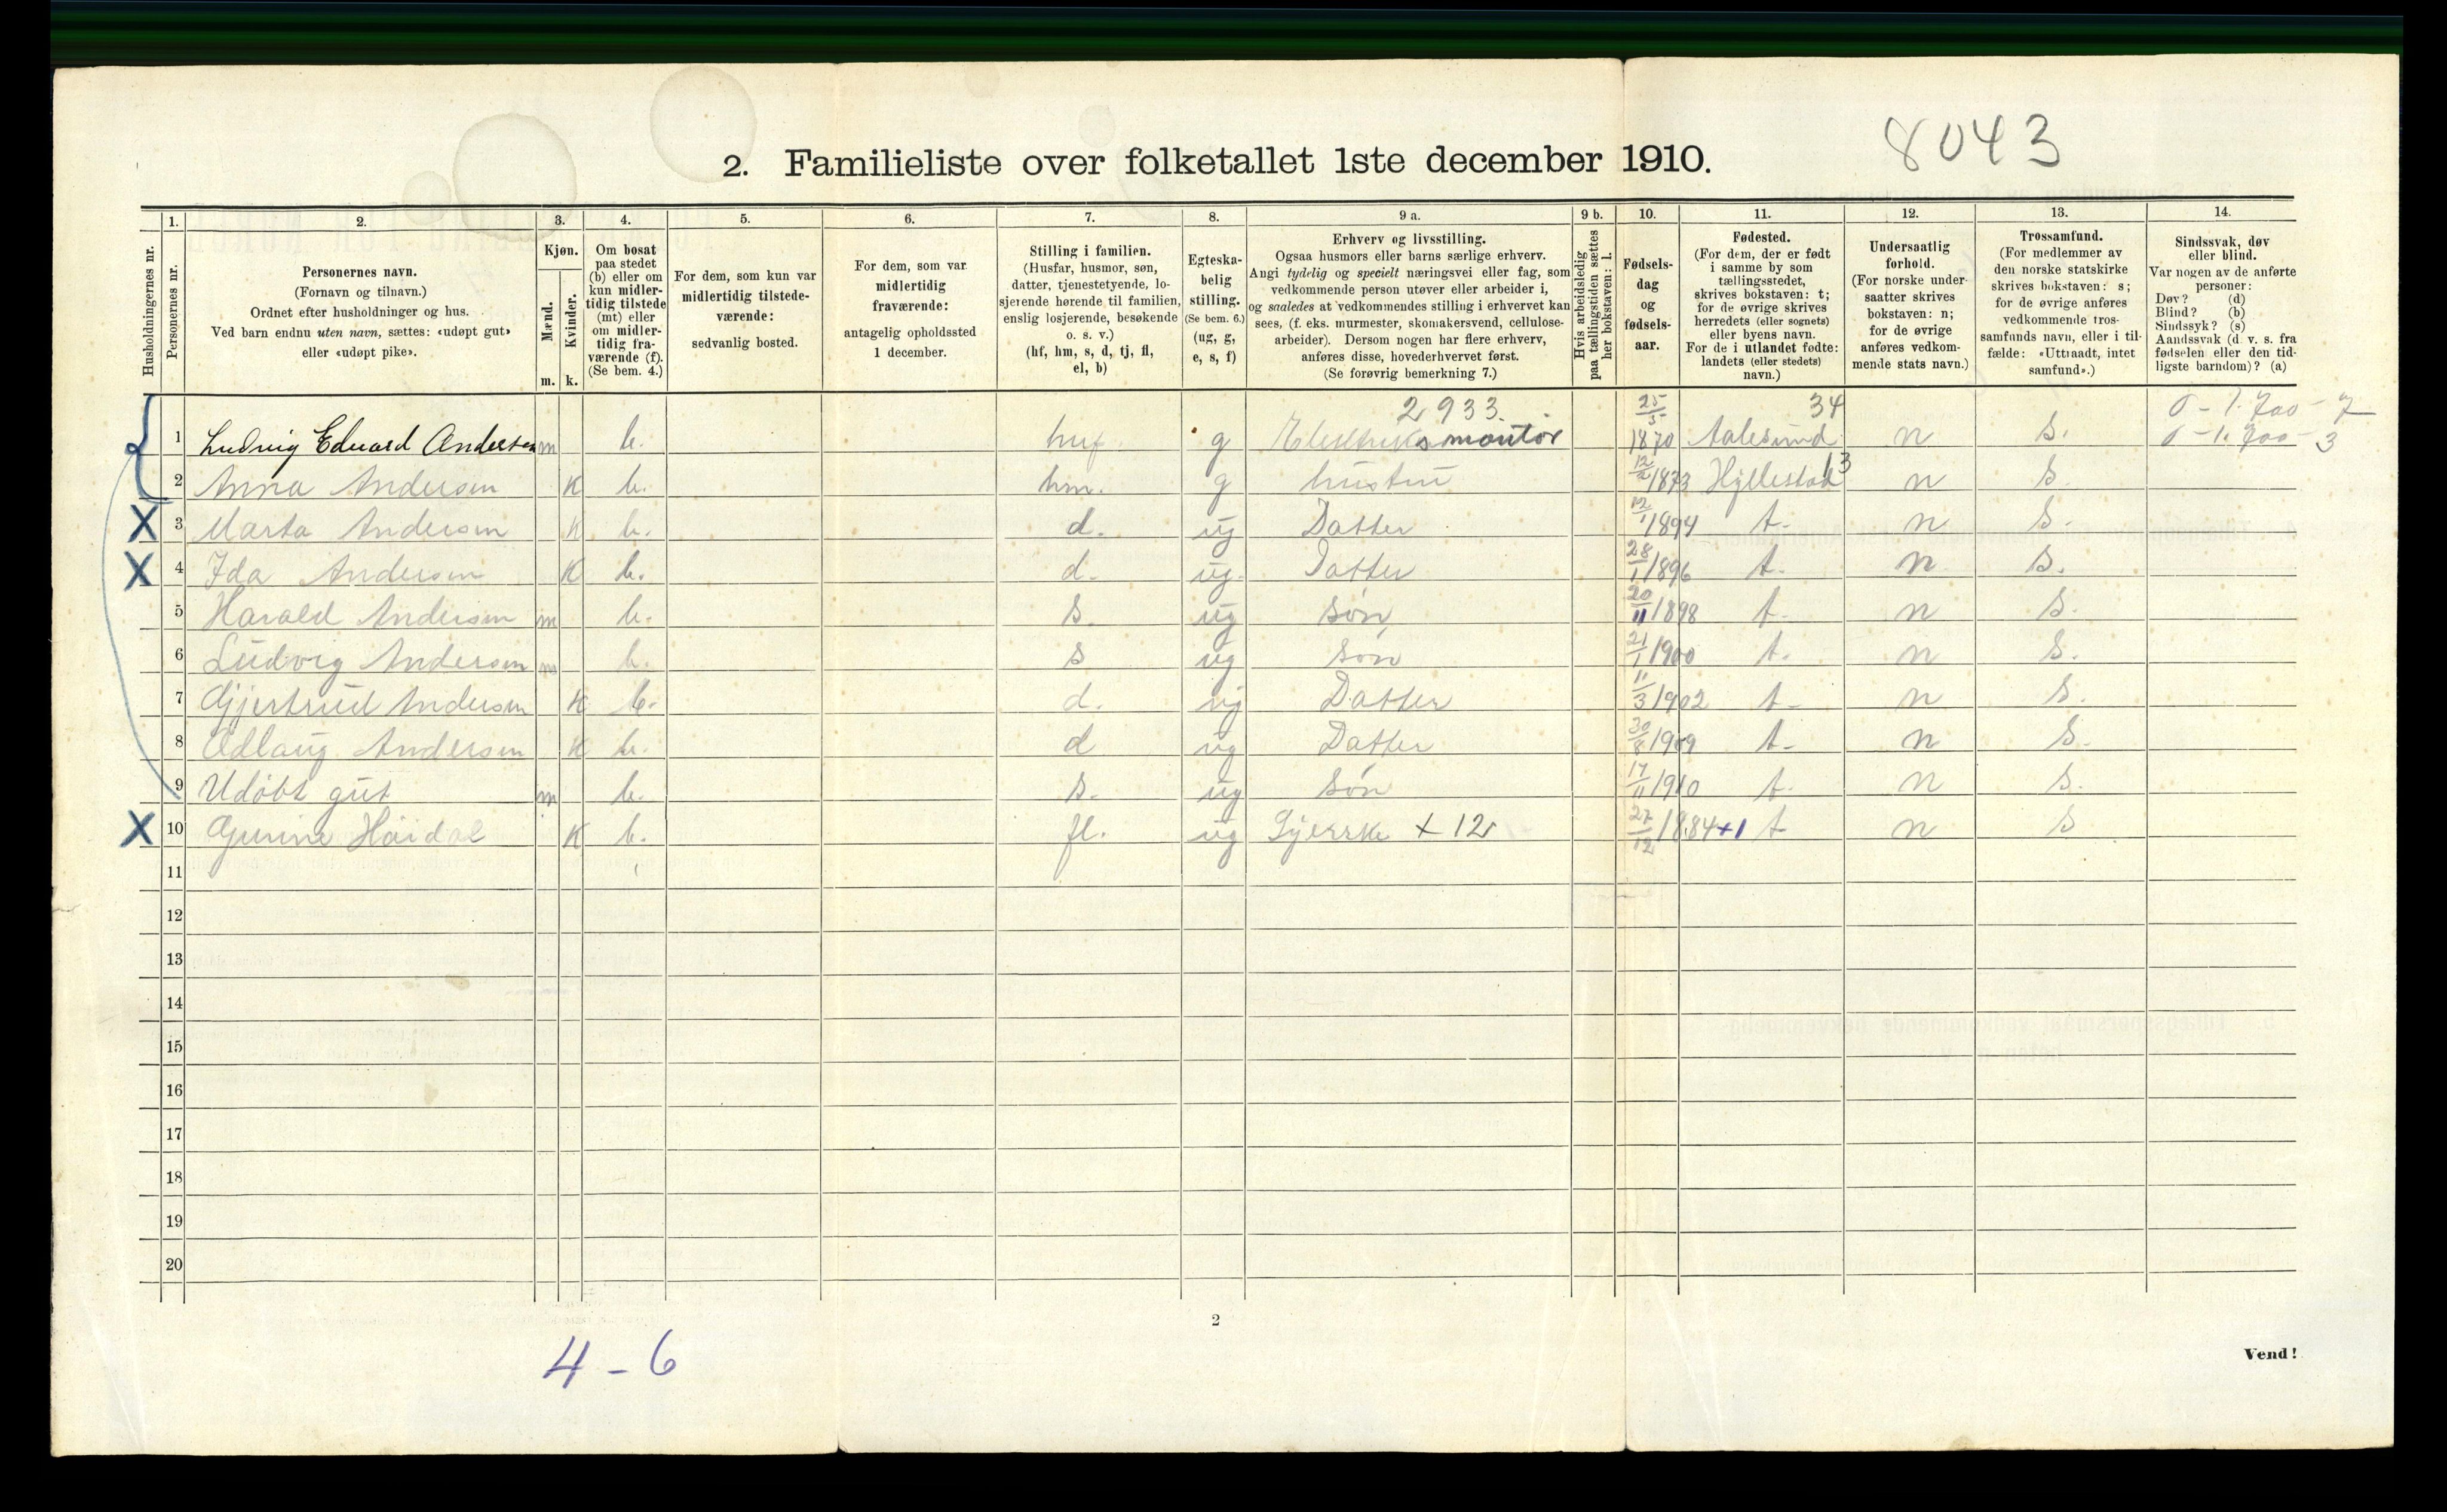 8043
2. Familieliste over folketallet 1ste december 1910.
Husholdningernes nr.
1.
Personernes nr.
2.
Personernes navn.
(Fornavn og tilnavn.)
Ordnet efter husholdninger og hus.
Ved barn endnu uten navn, sættes: «udøpt gut»
eller «udøpt pike».
3.
Kjøn.
Mænd.
m.
Kvinder.
k.
4.
Om bosat
paa stedet
(b) eller om
kun midler-
tidig tilstede
(mt) eller
om midler-
tidig fra-
værende (f).
(Se bem. 4.)
5.
For dem, som kun var
midlertidig tilstede-
værende:
sedvanlig bosted.
6.
For dem, som var
midlertidig
fraværende:
antagelig opholdssted
1 december.
7.
Stilling i familien.
(Husfar, husmor, søn,
datter, tjenestetyende, lo-
sjerende hørende til familien,
enslig losjerende, besøkende
o. s. v.)
(hf, hm, s, d, tj, fl,
el, b)
8.
Egteska-
belig
stilling.
(Se bem. 6.)
(ug, g,
e, s, f)
9 a.
Erhverv og livsstilling.
Ogsaa husmors eller barns særlige erhverv.
Angi tydelig og specielt næringsvei eller fag, som
vedkommende person utøver eller arbeider i,
og saaledes at vedkommendes stilling i erhvervet kan
sees, (f. eks. murmester, skomakersvend, cellulose-
arbeider). Dersom nogen har flere erhverv,
anføres disse, hovederhvervet først.
(Se forøvrig bemerkning 7.)
9 b.
Hvis arbeidsledig
paa tællingstiden sættes
her bokstaven: l.
10.
Fødsels-
dag
og
fødsels-
aar.
11.
Fødested.
(For dem, der er født
i samme by som
tællingsstedet,
skrives bokstaven: t;
for de øvrige skrives
herredets (eller sognets)
eller byens navn.
For de i utlandet fødte:
landets (eller stedets)
navn.)
12.
Undersaatlig
forhold.
(For norske under-
saatter skrives
bokstaven: n;
for de øvrige
anføres vedkom-
mende stats navn.)
13.
Trossamfund.
(For medlemmer av
den norske statskirke
skrives bokstaven: s;
for de øvrige anføres
vedkommende tros-
samfunds navn, eller i til-
fælde: «Uttraadt, intet
samfund».)
14.
Sindssvak, døv
eller blind.
Var nogen av de anførte
personer:
Døv? (d)
Blind? (b)
Sindssyk? (s)
Aandssvak (d. v. s. fra
fødselen eller den tid-
ligste barndom)? (a)
2933. 34 0 - 1.700 - 7
1 Ludvig Eduard Andersen m b. huf. g Elektriksmontör 25/5 1870 Aalesund n s. 0 - 1.700 - 3
2 Anna Andersen K b. hm. g hustru 12/2 1873 Hyllestad 13 n s.
X 3 Marta Andersen K b. d. ug Datter 12/1 1894 t. n s.
X 4 Ida Andersen K b. d. ug. Datter 28/1 1896 t. n s.
5 Harald Andersen m b. s. ug søn 20/11 1898 t. n s.
6 Ludvig Andersen m b. s ug søn 21/1 1900 t. n s.
7 Gjertrud Andersen K b. d. ug Datter 11/3 1902 t. n s.
8 Odlaug Andersen K b. d ug Datter 30/8 1909 t. n s.
9 Udøbt gut m b. s. ug søn 17/11 1910 t. n s.
X 10 Gurine Høidal K b. fl. ug Syerske + 12 27/12 1884 +1 t n s
11
12
13
14
15
16
17
18
19
20
2
4 - 6
Vend!